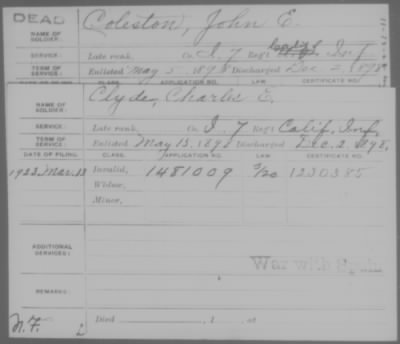 DEAD
Coleston, John E.
NAME OF SOLDIER:
SERVICE: Late rank, Co. I, 7 Reg't Inf
TERM OF SERVICE: Enlisted May 1898 Discharged Dec 2, 1898
CLASS. APPLICATION NO. LAW. CERTIFICATE NO.
Clyde, Charles E.
NAME OF SOLDIER:
SERVICE: Late rank, Co. I, 7 Reg't Calif. Inf.
TERM OF SERVICE: Enlisted May 13, 1898 Discharged Dec. 2, 1898,
DATE OF FILING. CLASS. APPLICATION NO. LAW. CERTIFICATE NO.
1923 Mar. 13 Invalid, 1481009 1230385
Widow,
Minor,
ADDITIONAL SERVICES:
War with Spain
REMARKS:
N.F. Died , 1 , at